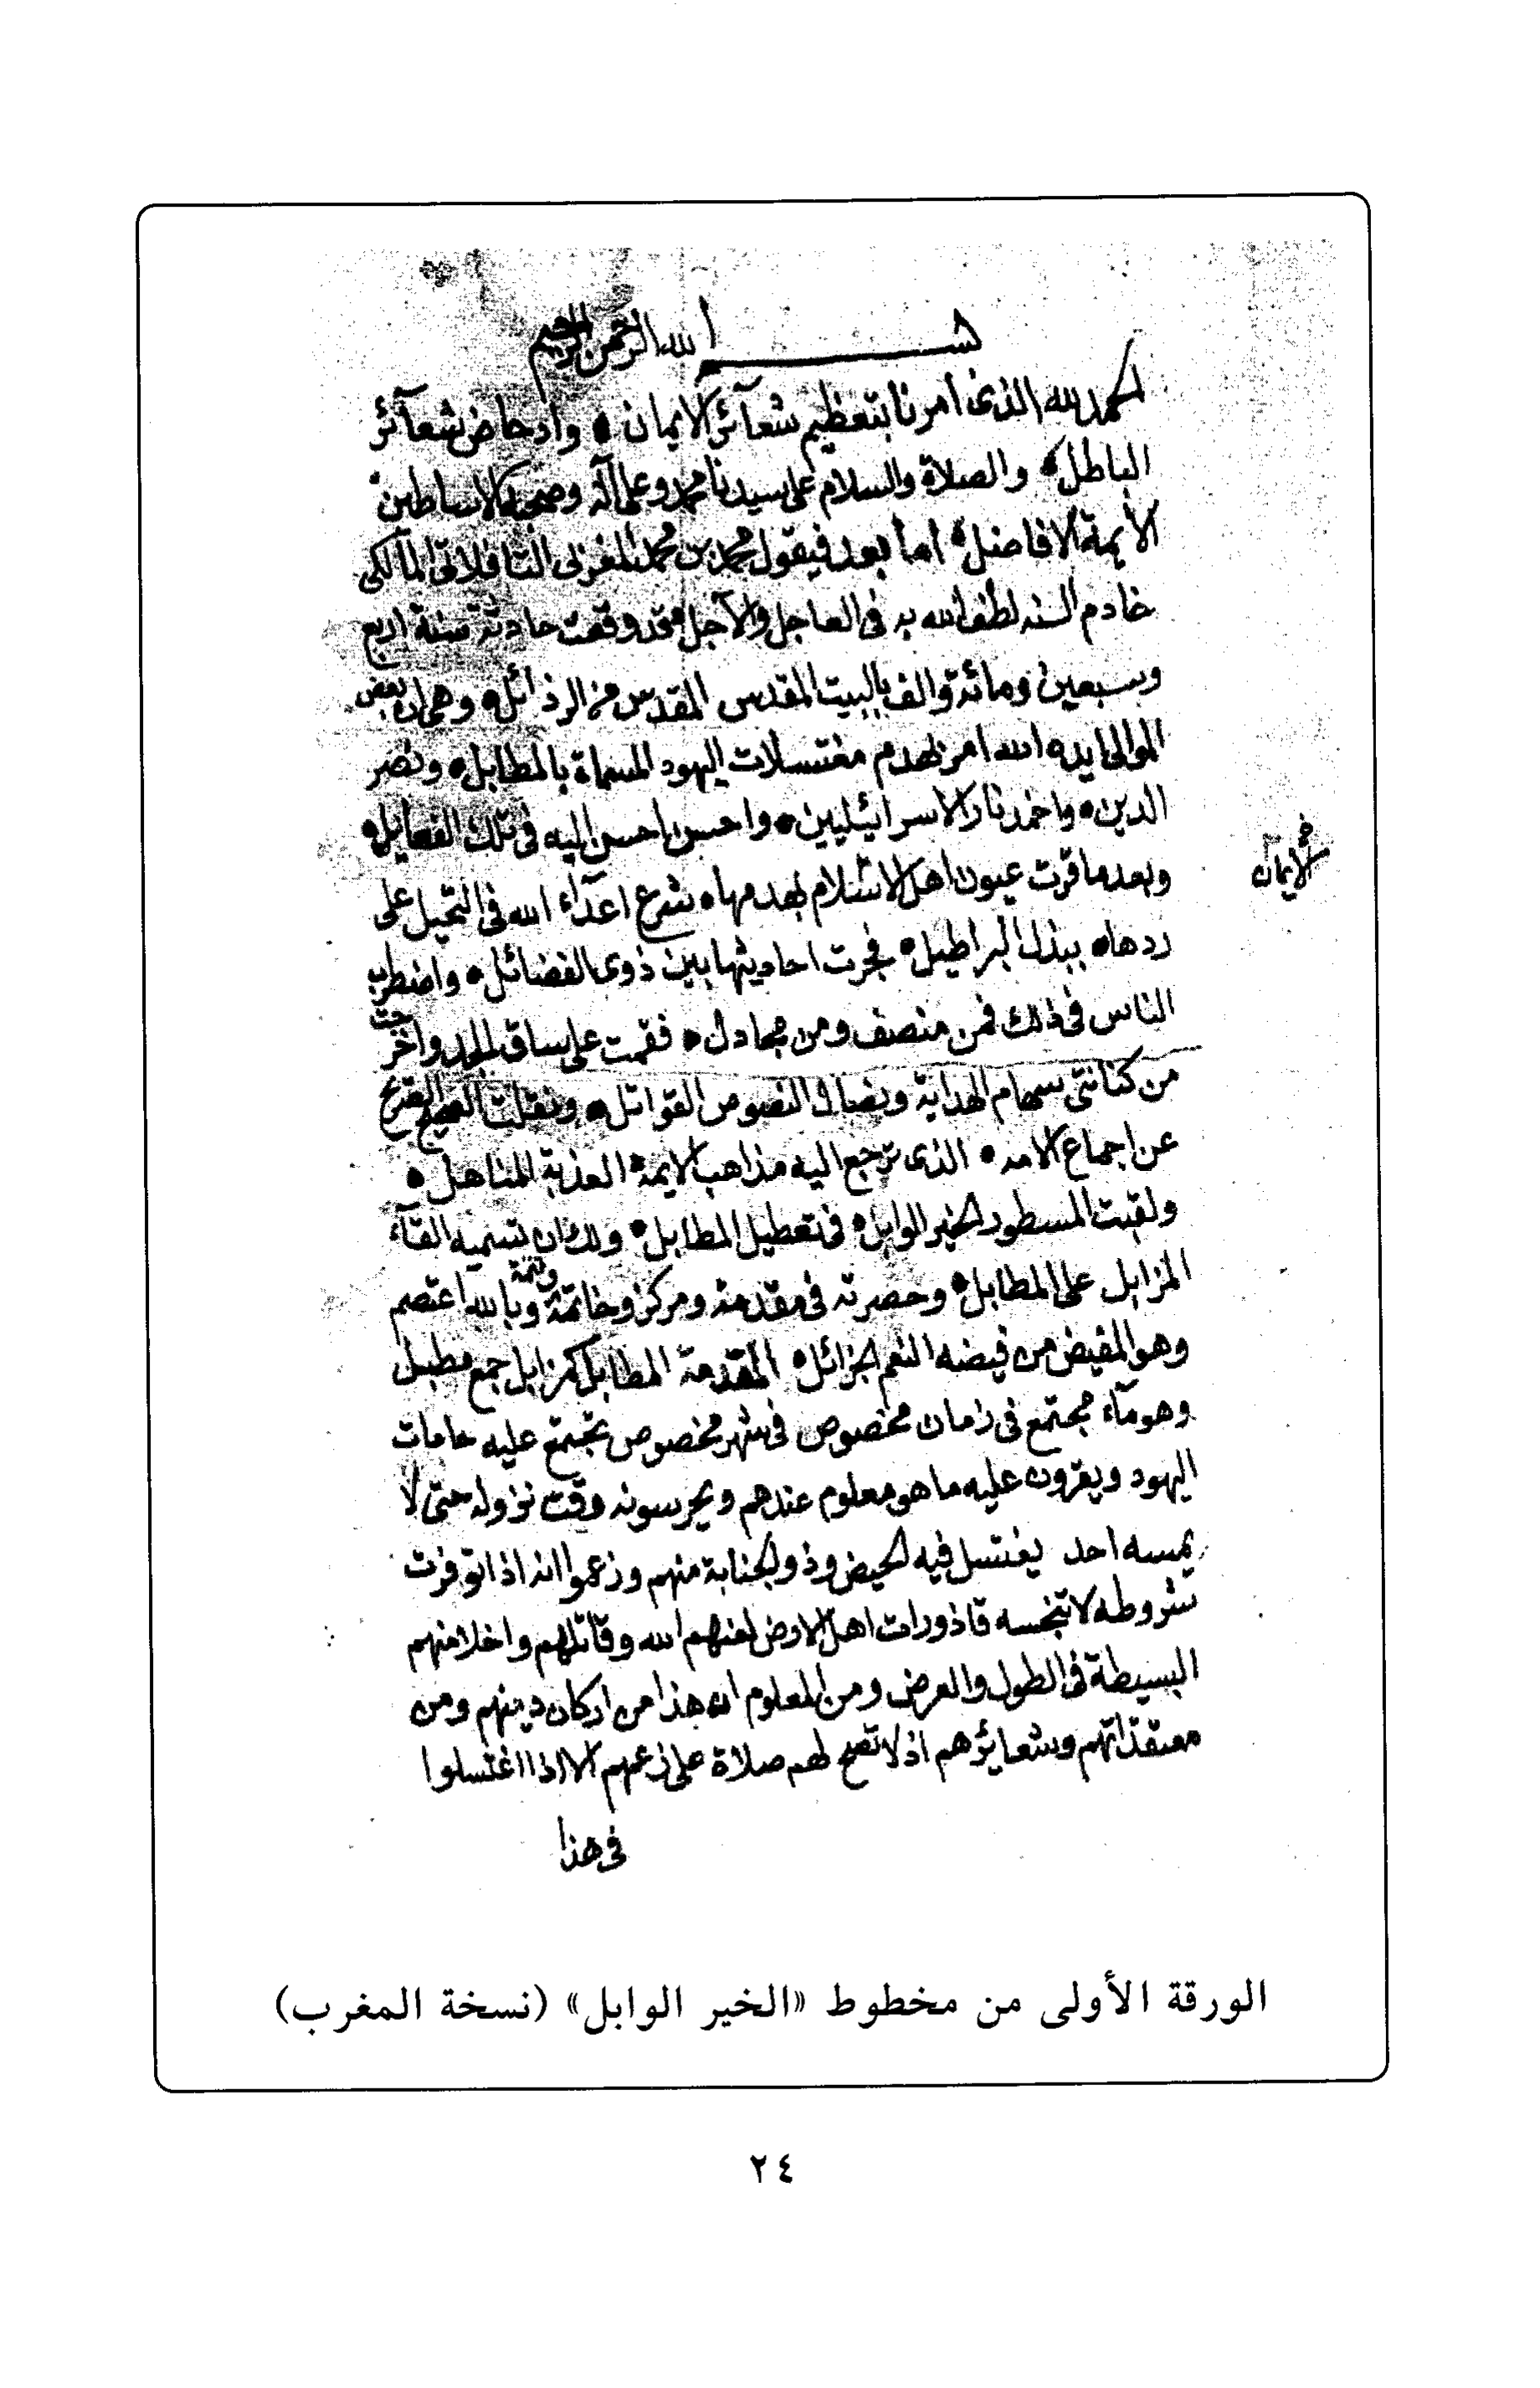 بسم الله الرحمن الرحيم
الحمد لله الذى امرنا بتعظيم شعآئر الايمان وادحاض شعآئر
الباطل والصلاة والسلام على سيدنا محمد وعلى آله وصحبه الاساطين
الأيمة الافاضل اما بعد فيقول محمد بن محمد المغربى التافلاتى المالكى
خادم السنه لطف الله به فى العاجل والآجل قد وقعت حادثة سنة اربع
وسبعين ومائة والف بالبيت المقدس المقدس من الرذائل وهى ان بعض
الموالى ايده الله امر بهدم مغتسلات اليهود المسماة بالمطابل ونصر
الدين واخمد نار الاسرائيليين واحسن باحسن اليه فى تلك الفعايل
فى
الايمان
وبعد ما قرت عيون اهل الاسلام بهدمها شرع اعدآء الله فى التحيل على
ردها ببذل البراطيل فجرت احاديثها بين ذوى الفضائل واضطرب
الناس فى ذلك فمن منصف ومن مجادل فقمت على ساق الجد واخرجت
من كنانتى سهام الهداية ونصال النصوص القواتل ونقلت الصريح
عن اجماع الامه الذى ترجع اليه مذاهب الايمة العذبة المناهل
ولقبت المسطور الخير الوابل فى تعطيل المطابل ولك ان تسميه القآء
المزابل على المطابل وحصرته فى مقدمة ومركز وخاتمة وتتمة وبالله اعتصم
وهو المفيض من فيضه النعم الجزائل المقدمة المطابل كمزابل جمع مطبل
وهو مآء مجتمع فى زمان مخصوص فى شهر مخصوص تجتمع عليه حامات
اليهود ويقرون عليه ما هو معلوم عندهم ويحرسونه وقت نزوله حتى لا
يمسه احد يغتسل فيه الحيض وذو الجنابة منهم وزعموا انه اذا توفرت
شروطه لا تنجسه قاذورات اهل الارض لعنهم الله وقاتلهم واخلا منهم
البسيطة فى الطول والعرض ومن المعلوم ان هذا من اركان دينهم ومن
معتقداتهم وشعايرهم اذ لا تصح لهم صلاة على زعمهم الا اذا اغتسلوا
فى هذا
الورقة الأولى من مخطوط «الخير الوابل» (نسخة المغرب)
٢٤